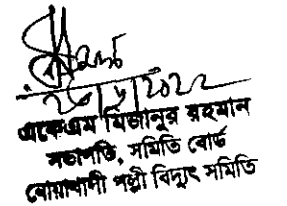 ২৫/১/২০২২
একেএম মিজানুর রহমান
সভাপতি, সমিতি বোর্ড
নোয়াখালী পল্লী বিদ্যুৎ সমিতি